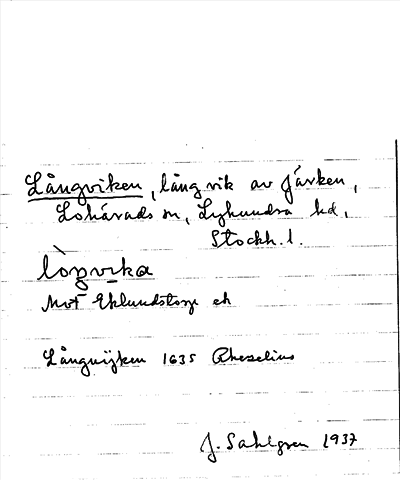 Långviken, lång vik av Järken,
Lohärads sn, Lyhundra hd,
Stockh. l.
lòŋvika
Mot Eklundstorp ek
Långwijken 1635 Rhezelius
J. Sahlgren 1937